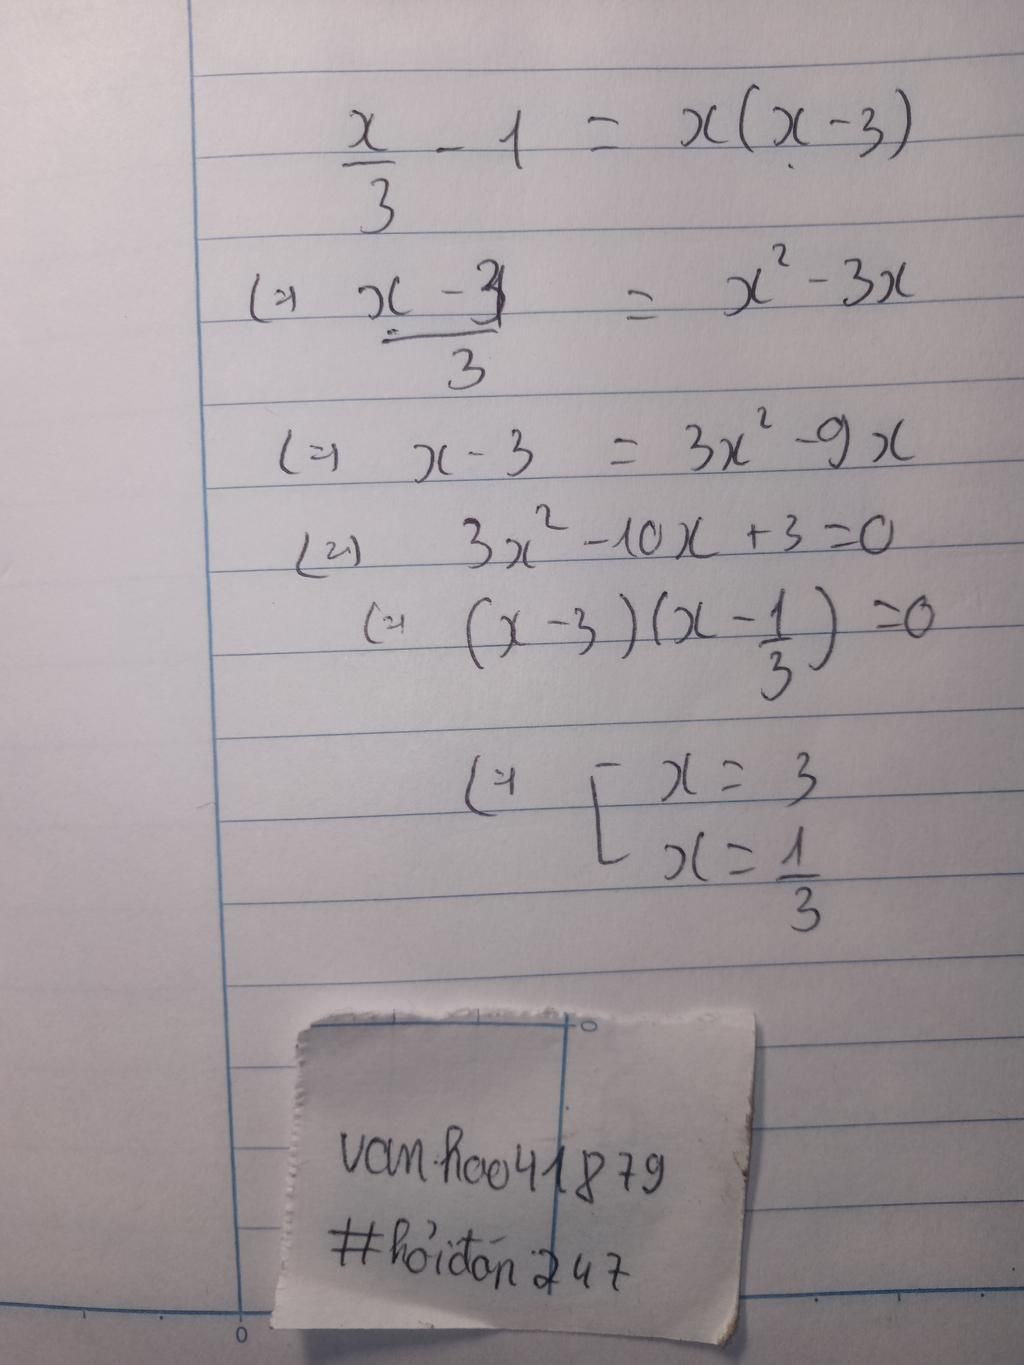 x/3 - 1 = x(x-3)
(=) (x-3)/3 = x² - 3x
(=) x - 3 = 3x² - 9x
(=) 3x² - 10x + 3 = 0
(=) (x-3)(x - 1/3) = 0
(=) [ x = 3
x = 1/3
van.hao41879
#hỏiđán247
0